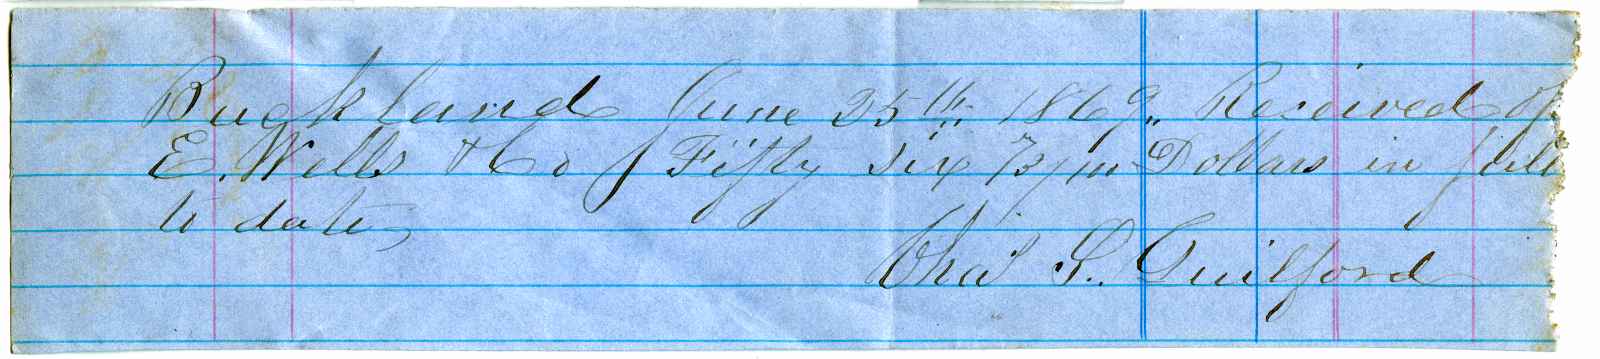 Buckland June 25th 1869,, Received of
E. Wells & Co Fifty six 73/100 Dollars in full
to date,
Chas S. Guilford